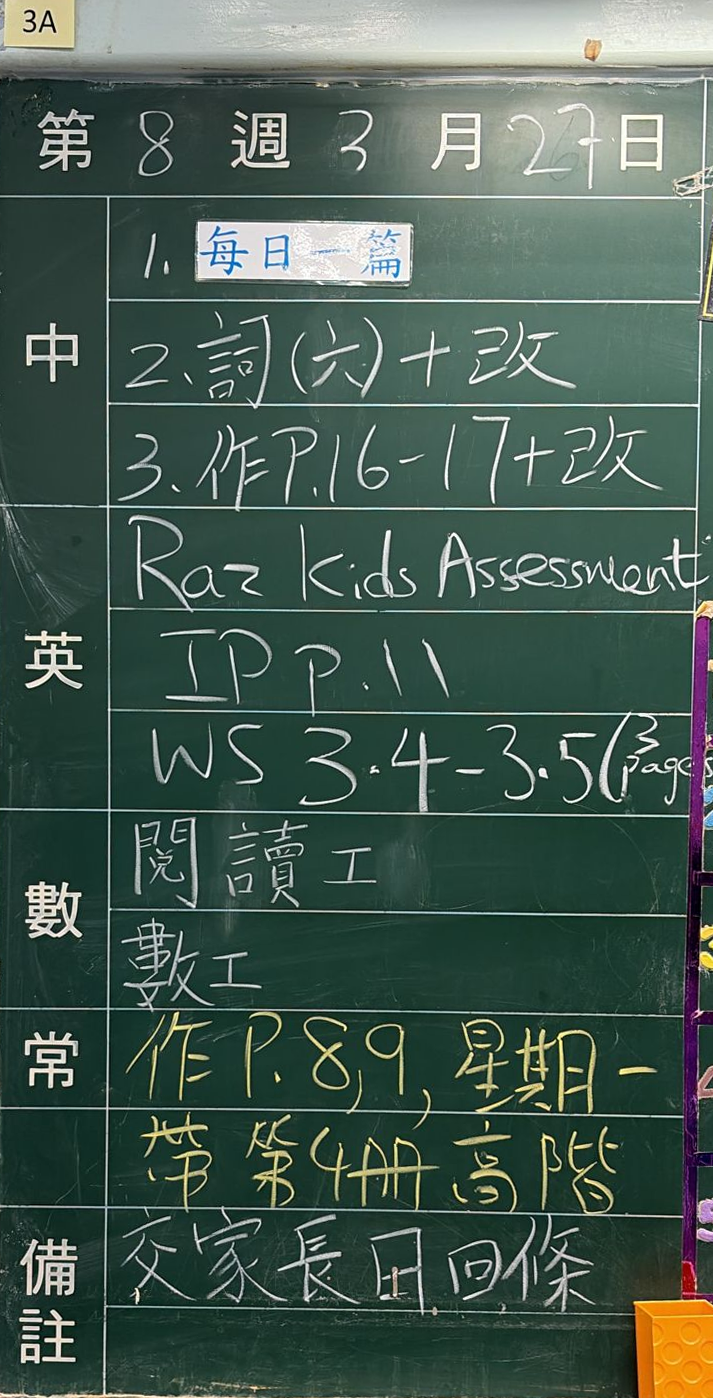 3A
第 8 週 3 月 27 日
中
1. 每日一篇
2. 詞(六)+改
3. 作P.16-17+改
英
Raz Kids Assessment
IP P.11
WS 3.4-3.5(3 pages
數
閱讀工
數工
常
作 P.8,9, 星期一
帶第4冊高階
備註
交家長日回條